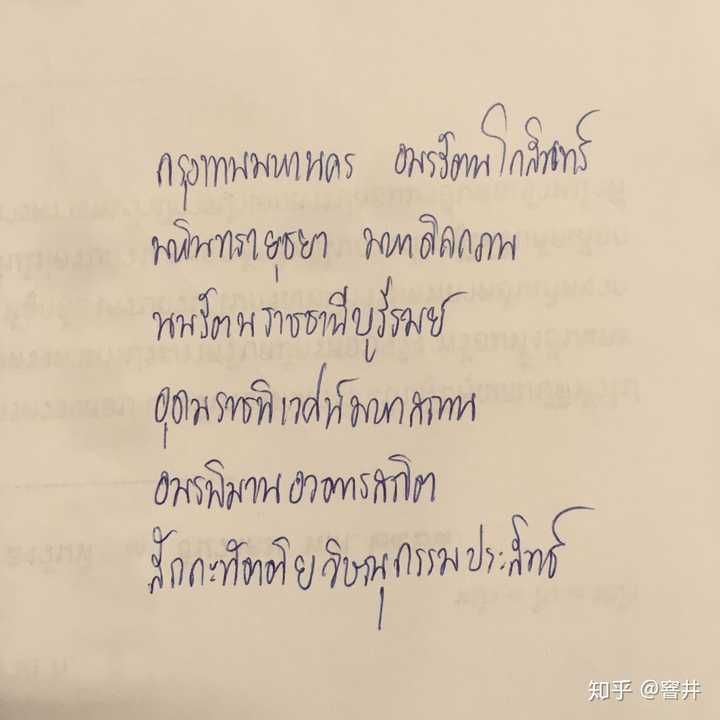 กรุงเทพมหานคร อมรรัตนโกสินทร์
มหินทรายุธยา มหาดิลกภพ
นพรัตนราชธานีบูรีรมย์
อุดมราชนิเวศน์มหาสถาน
อมรพิมานอวตารสถิต
สักกะทัตติยวิษณุกรรมประสิทธิ์
知乎 @窨井